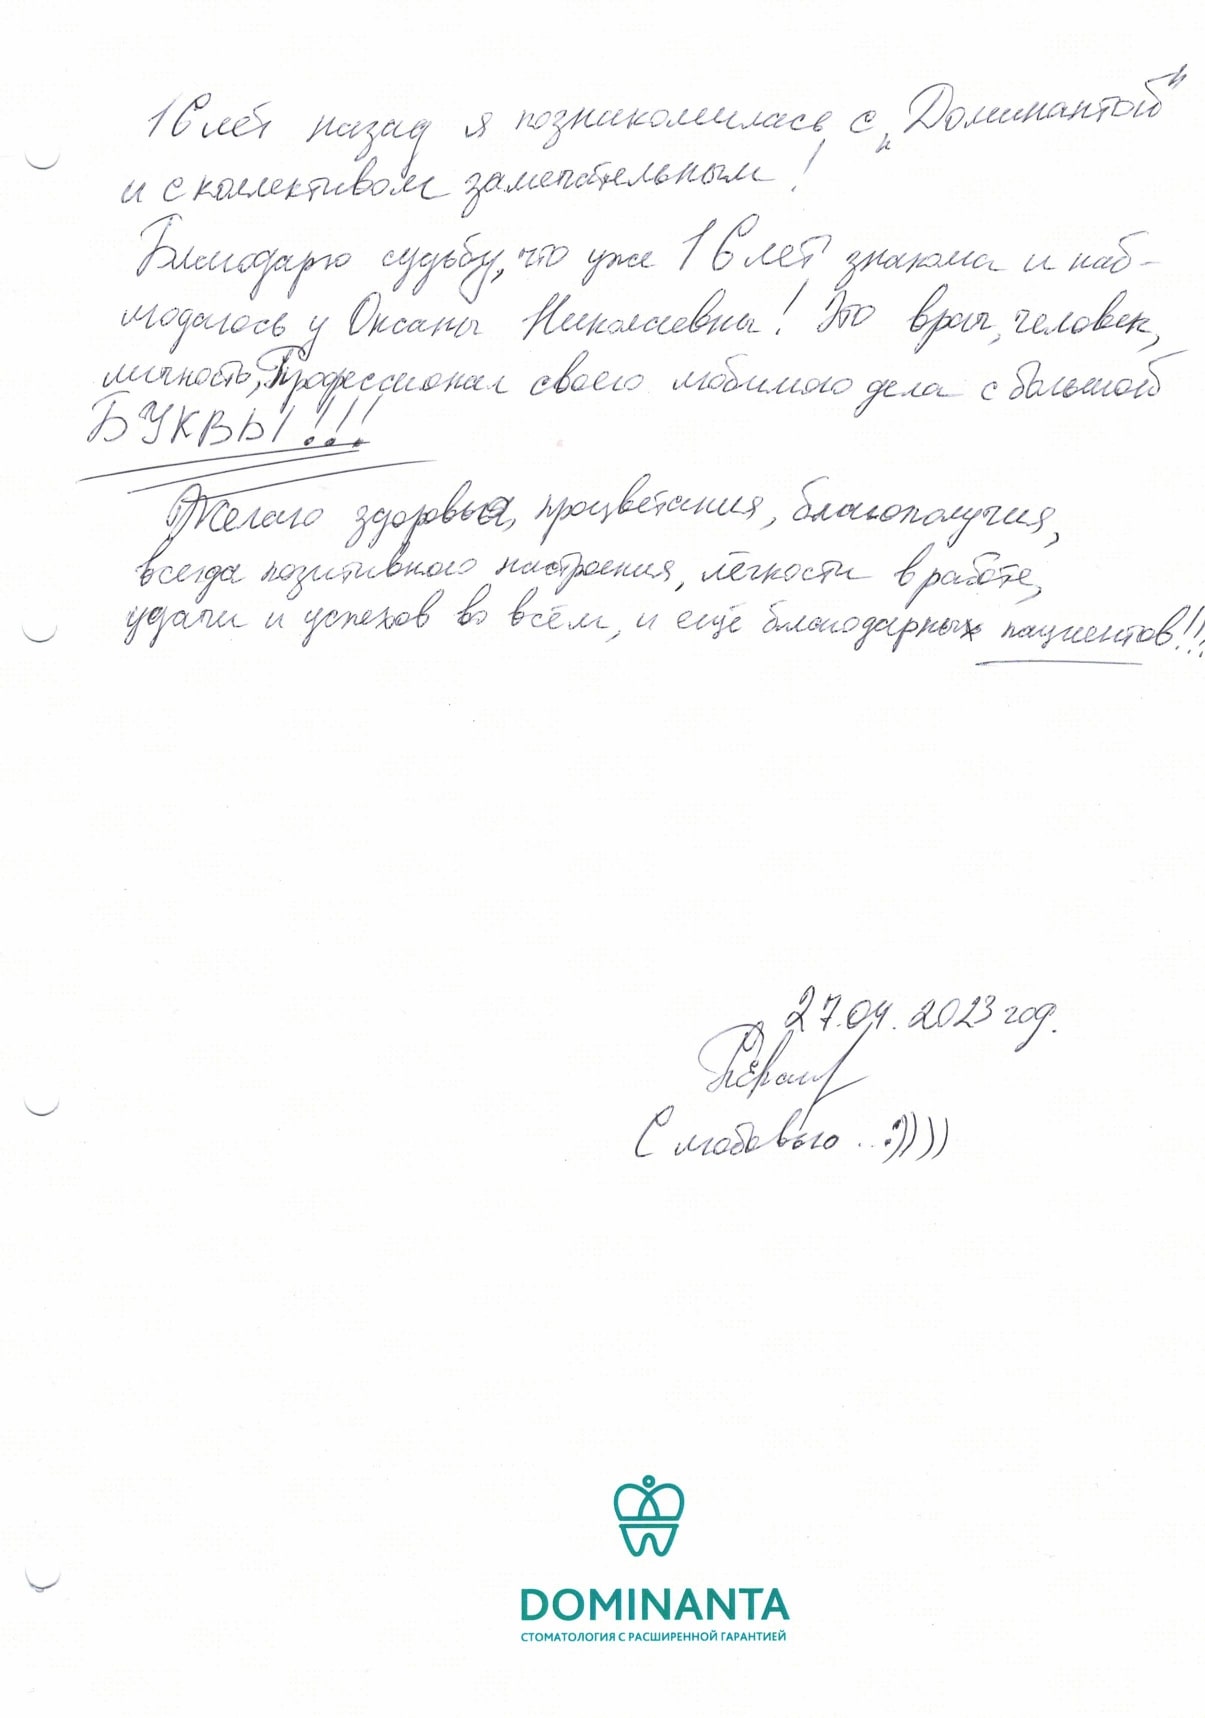 16 лет назад я познакомилась с „Доминантой"
и с коллективом замечательным!
Благодарю судьбу, что уже 16 лет знакома и наб-
людаюсь у Оксаны Николаевны! Это врач, человек,
личность, Профессионал своего любимого дела с большой
БУКВЫ!!!
Желаю здоровья, процветания, благополучия,
всегда позитивного настроения, лёгкости в работе,
удачи и успехов во всём, и ещё благодарных пациентов!!!
27.04.2023 год.
С любовью ..:))))
DOMINANTA
СТОМАТОЛОГИЯ С РАСШИРЕННОЙ ГАРАНТИЕЙ